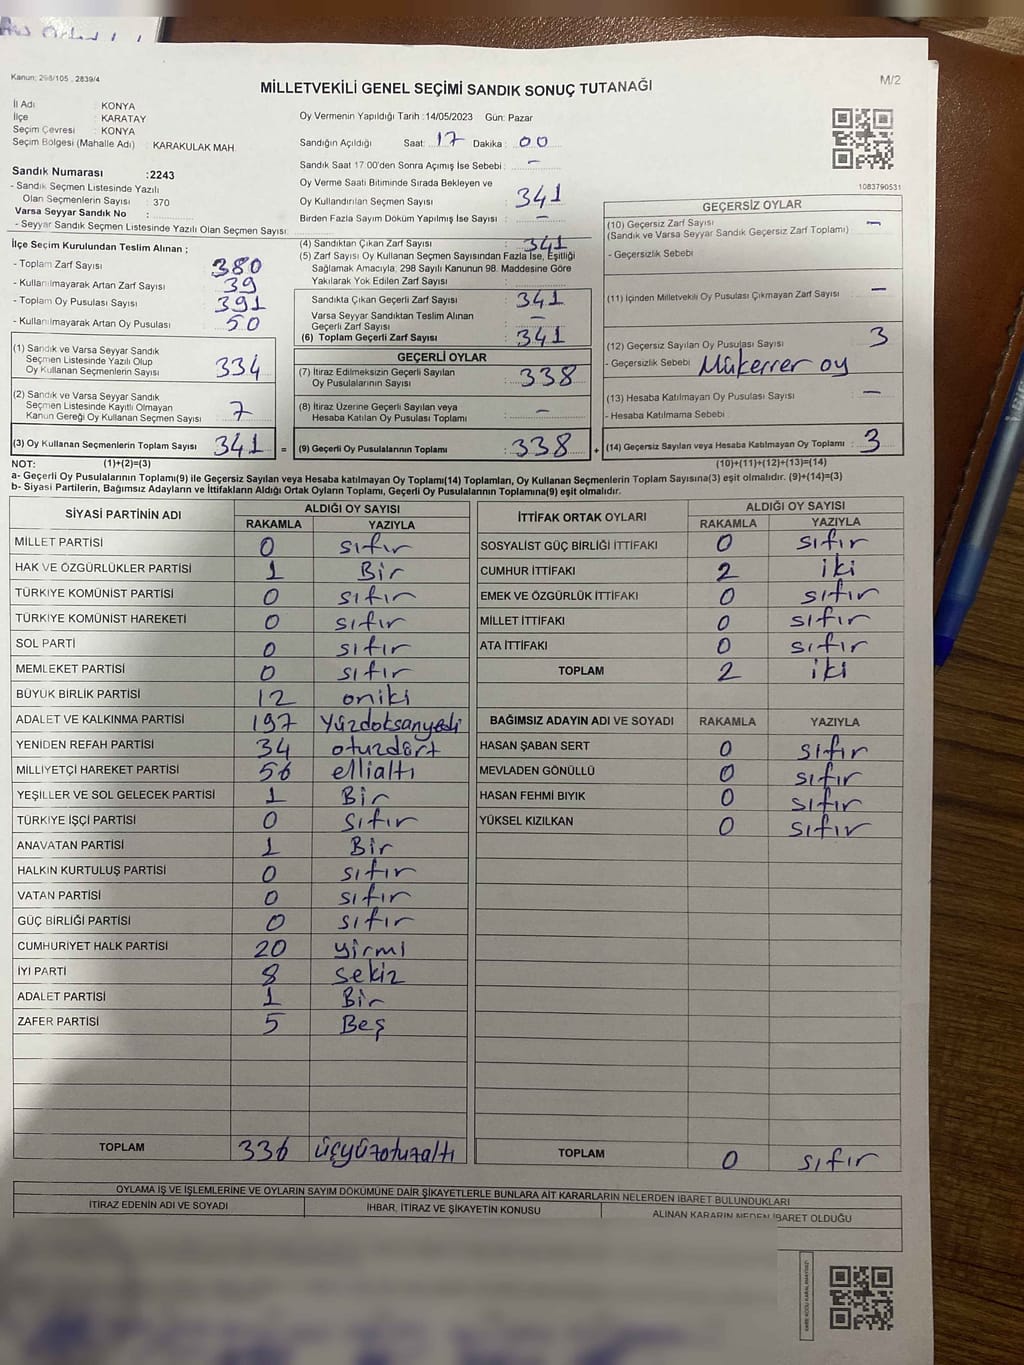 Kanun: 298/105 , 2839/4
M/2
MİLLETVEKİLİ GENEL SEÇİMİ SANDIK SONUÇ TUTANAĞI
İl Adı : KONYA
İlçe : KARATAY
Seçim Çevresi : KONYA
Seçim Bölgesi (Mahalle Adı) : KARAKULAK MAH.
Sandık Numarası :2243
- Sandık Seçmen Listesinde Yazılı
Olan Seçmenlerin Sayısı : 370
Varsa Seyyar Sandık No :
- Seyyar Sandık Seçmen Listesinde Yazılı Olan Seçmen Sayısı:
Oy Vermenin Yapıldığı Tarih :14/05/2023 Gün: Pazar
Sandığın Açıldığı Saat: 17 Dakika : 00
Sandık Saat 17.00'den Sonra Açımış İse Sebebi : -
Oy Verme Saati Bitiminde Sırada Bekleyen ve
Oy Kullandırılan Seçmen Sayısı : 341
Birden Fazla Sayım Döküm Yapılmış İse Sayısı : -
1083790531
İlçe Seçim Kurulundan Teslim Alınan ;
- Toplam Zarf Sayısı : 380
- Kullanılmayarak Artan Zarf Sayısı : 39
- Toplam Oy Pusulası Sayısı : 391
- Kullanılmayarak Artan Oy Pusulası : 50
(1) Sandık ve Varsa Seyyar Sandık
Seçmen Listesinde Yazılı Olup
Oy Kullanan Seçmenlerin Sayısı : 334
(2) Sandık ve Varsa Seyyar Sandık
Seçmen Listesinde Kayıtlı Olmayan
Kanun Gereği Oy Kullanan Seçmen Sayısı : 7
(3) Oy Kullanan Seçmenlerin Toplam Sayısı : 341 =
(4) Sandıktan Çıkan Zarf Sayısı : 341
(5) Zarf Sayısı Oy Kullanan Seçmen Sayısından Fazla İse, Eşitliği
Sağlamak Amacıyla, 298 Sayılı Kanunun 98. Maddesine Göre
Yakılarak Yok Edilen Zarf Sayısı :
Sandıkta Çıkan Geçerli Zarf Sayısı : 341
Varsa Seyyar Sandıktan Teslim Alınan
Geçerli Zarf Sayısı : -
(6) Toplam Geçerli Zarf Sayısı : 341
GEÇERLİ OYLAR
(7) İtiraz Edilmeksizin Geçerli Sayılan
Oy Pusulalarının Sayısı : 338
(8) İtiraz Üzerine Geçerli Sayılan veya
Hesaba Katılan Oy Pusulası Toplamı : -
(9) Geçerli Oy Pusulalarının Toplamı : 338 +
GEÇERSİZ OYLAR
(10) Geçersiz Zarf Sayısı : -
(Sandık ve Varsa Seyyar Sandık Geçersiz Zarf Toplamı)
- Geçersizlik Sebebi
(11) İçinden Milletvekili Oy Pusulası Çıkmayan Zarf Sayısı : -
(12) Geçersiz Sayılan Oy Pusulası Sayısı : 3
- Geçersizlik Sebebi Mükerrer oy
(13) Hesaba Katılmayan Oy Pusulası Sayısı : -
- Hesaba Katılmama Sebebi :
(14) Geçersiz Sayılan veya Hesaba Katılmayan Oy Toplamı : 3
NOT: (1)+(2)=(3)
(10)+(11)+(12)+(13)=(14)
a- Geçerli Oy Pusulalarının Toplamı(9) ile Geçersiz Sayılan veya Hesaba katılmayan Oy Toplamı(14) Toplamları, Oy Kullanan Seçmenlerin Toplam Sayısına(3) eşit olmalıdır. (9)+(14)=(3)
b- Siyasi Partilerin, Bağımsız Adayların ve İttifakların Aldığı Ortak Oyların Toplamı, Geçerli Oy Pusulalarının Toplamına(9) eşit olmalıdır.
SİYASİ PARTİNİN ADI ALDIĞI OY SAYISI
RAKAMLA YAZIYLA
MİLLET PARTİSİ 0 sıfır
HAK VE ÖZGÜRLÜKLER PARTİSİ 1 Bir
TÜRKİYE KOMÜNİST PARTİSİ 0 sıfır
TÜRKİYE KOMÜNİST HAREKETİ 0 sıfır
SOL PARTİ 0 sıfır
MEMLEKET PARTİSİ 0 sıfır
BÜYÜK BİRLİK PARTİSİ 12 oniki
ADALET VE KALKINMA PARTİSİ 197 Yüzdoksanyedi
YENİDEN REFAH PARTİSİ 34 otuzdört
MİLLİYETÇİ HAREKET PARTİSİ 56 ellialtı
YEŞİLLER VE SOL GELECEK PARTİSİ 1 Bir
TÜRKİYE İŞÇİ PARTİSİ 0 sıfır
ANAVATAN PARTİSİ 1 Bir
HALKIN KURTULUŞ PARTİSİ 0 sıfır
VATAN PARTİSİ 0 sıfır
GÜÇ BİRLİĞİ PARTİSİ 0 sıfır
CUMHURİYET HALK PARTİSİ 20 yirmi
İYİ PARTİ 8 sekiz
ADALET PARTİSİ 1 Bir
ZAFER PARTİSİ 5 Beş
TOPLAM 336 üçyüzotuzaltı
İTTİFAK ORTAK OYLARI ALDIĞI OY SAYISI
RAKAMLA YAZIYLA
SOSYALİST GÜÇ BİRLİĞİ İTTİFAKI 0 sıfır
CUMHUR İTTİFAKI 2 iki
EMEK VE ÖZGÜRLÜK İTTİFAKI 0 sıfır
MİLLET İTTİFAKI 0 sıfır
ATA İTTİFAKI 0 sıfır
TOPLAM 2 iki
BAĞIMSIZ ADAYIN ADI VE SOYADI RAKAMLA YAZIYLA
HASAN ŞABAN SERT 0 sıfır
MEVLADEN GÖNÜLLÜ 0 sıfır
HASAN FEHMİ BIYIK 0 sıfır
YÜKSEL KIZILKAN 0 sıfır
TOPLAM 0 sıfır
OYLAMA İŞ VE İŞLEMLERİNE VE OYLARIN SAYIM DÖKÜMÜNE DAİR ŞİKAYETLERLE BUNLARA AİT KARARLARIN NELERDEN İBARET BULUNDUKLARI
İTİRAZ EDENİN ADI VE SOYADI İHBAR, İTİRAZ VE ŞİKAYETİN KONUSU ALINAN KARARIN NEDEN İBARET OLDUĞU